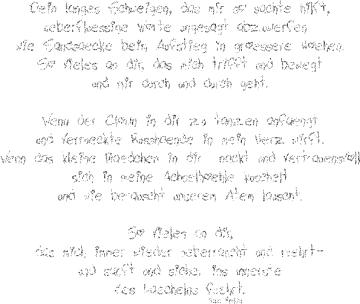 Dein langes Schweigen, das mir so sachte hilft,
ueberfluessige Worte ungesagt abzuwerfen
wie Sandsaecke beim Aufstieg in groessere Hoehen.
So vieles an dir, das mich trifft und bewegt
und mir durch und durch geht.
Wenn der Clown in dir zu tanzen anfaengt
und verrueckte Kusshaende in mein Herz wirft.
Wenn das kleine Maedchen in dir nackt und vertrauensvoll
sich in meine Achselhoehle kuschelt
und wie berauscht unserem Atem lauscht.
So vieles an dir,
das mich immer wieder ueberrascht und ruehrt-
und sanft und sicher ins Innerste
des Laechelns fuehrt.